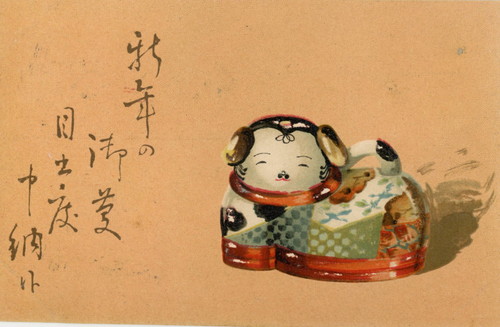 新年の
御慶
目出度
申納候